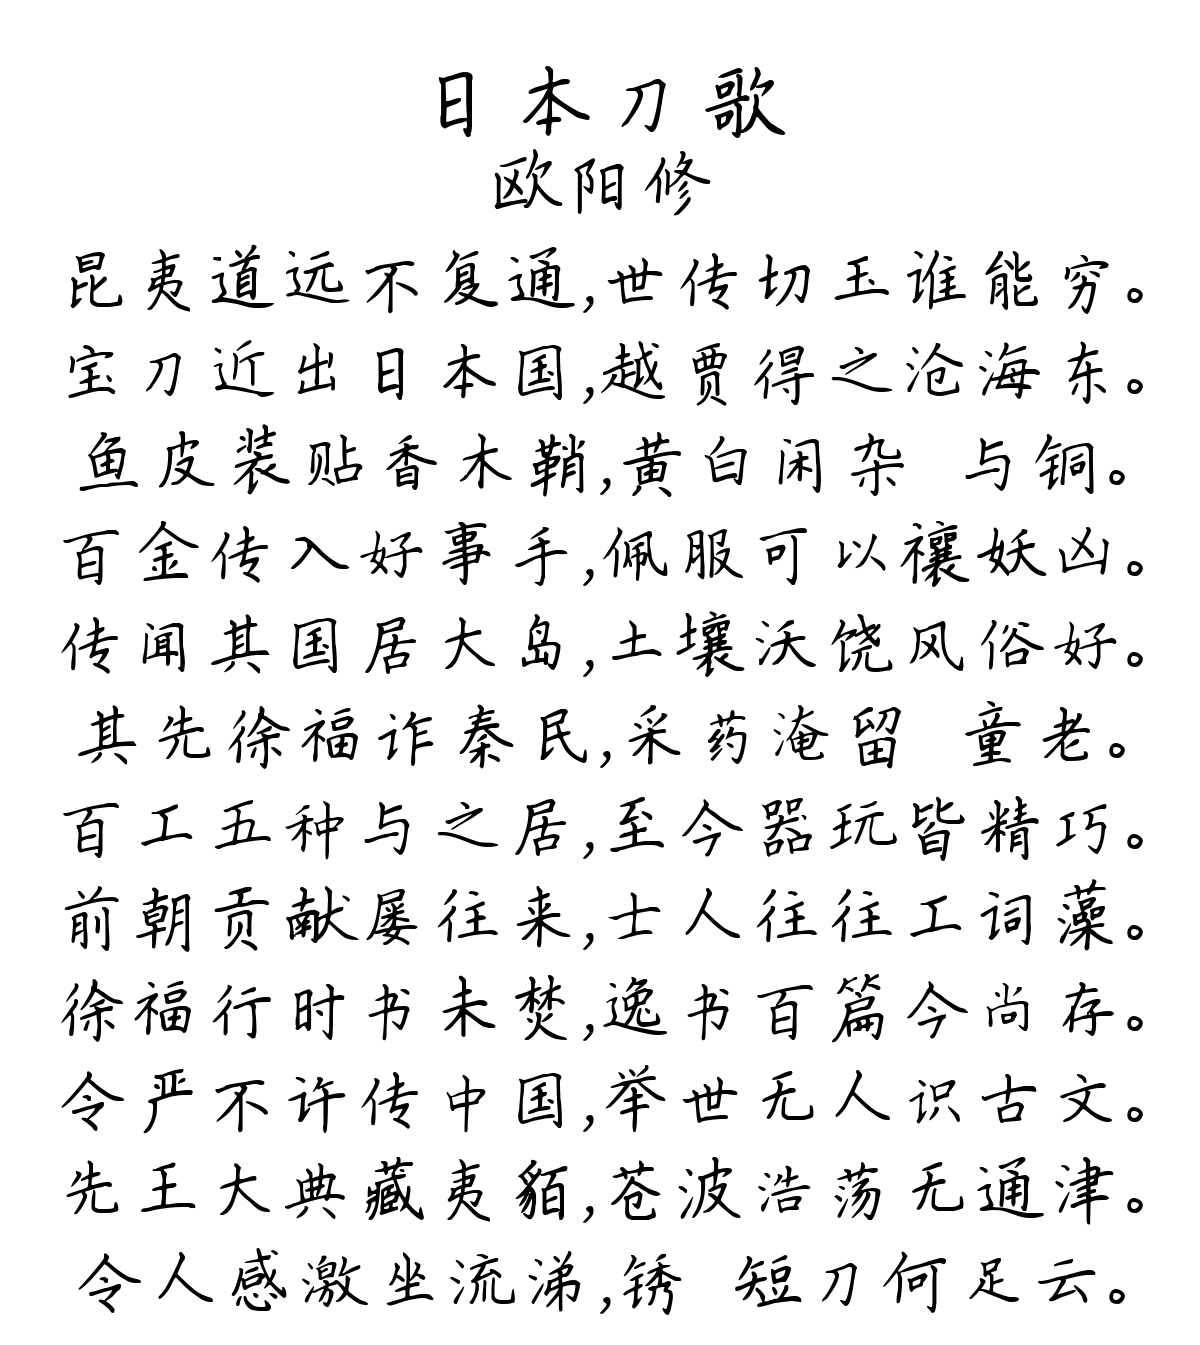 日本刀歌
欧阳修
昆夷道远不复通,世传切玉谁能穷。
宝刀近出日本国,越贾得之沧海东。
鱼皮装贴香木鞘,黄白闲杂 与铜。
百金传入好事手,佩服可以禳妖凶。
传闻其国居大岛,土壤沃饶风俗好。
其先徐福诈秦民,采药淹留 童老。
百工五种与之居,至今器玩皆精巧。
前朝贡献屡往来,士人往往工词藻。
徐福行时书未焚,逸书百篇今尚存。
令严不许传中国,举世无人识古文。
先王大典藏夷貊,苍波浩荡无通津。
令人感激坐流涕,锈 短刀何足云。